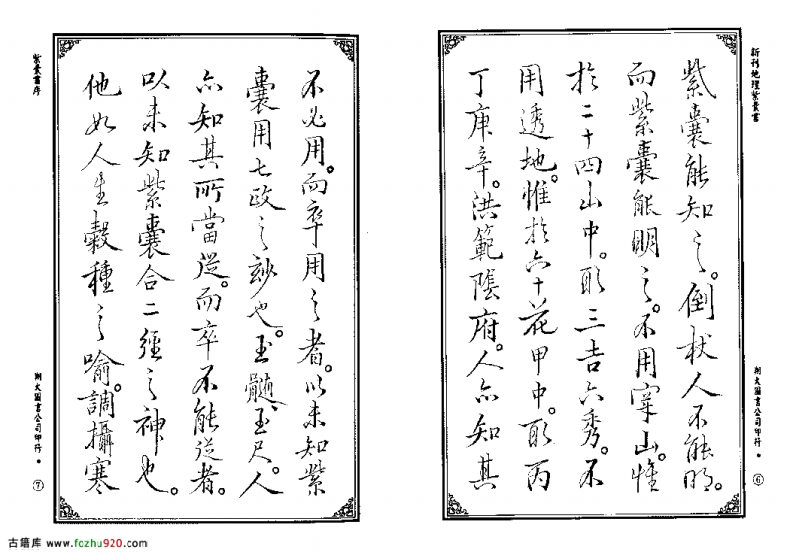 新刊地理紫囊書
紫囊能知之。倒杖人不能明。
而紫囊能明之。不用穿山。惟
於二十四山中。取三吉六秀。不
用透地。惟於六十花甲中。取丙
丁庚辛。洪範陰府。人亦知其
翔大圖書公司印行 • ⑥
紫囊書序
不必用。而卒用之者。以未知紫
囊用七政之妙也。玉髓玉尺。人
亦知其所當從。而卒不能從者。
以未知紫囊合二經之神也。
他如人生穀種之喻。調攝寒
翔大圖書公司印行 • ⑦
古籍库 www.fczhu920.com